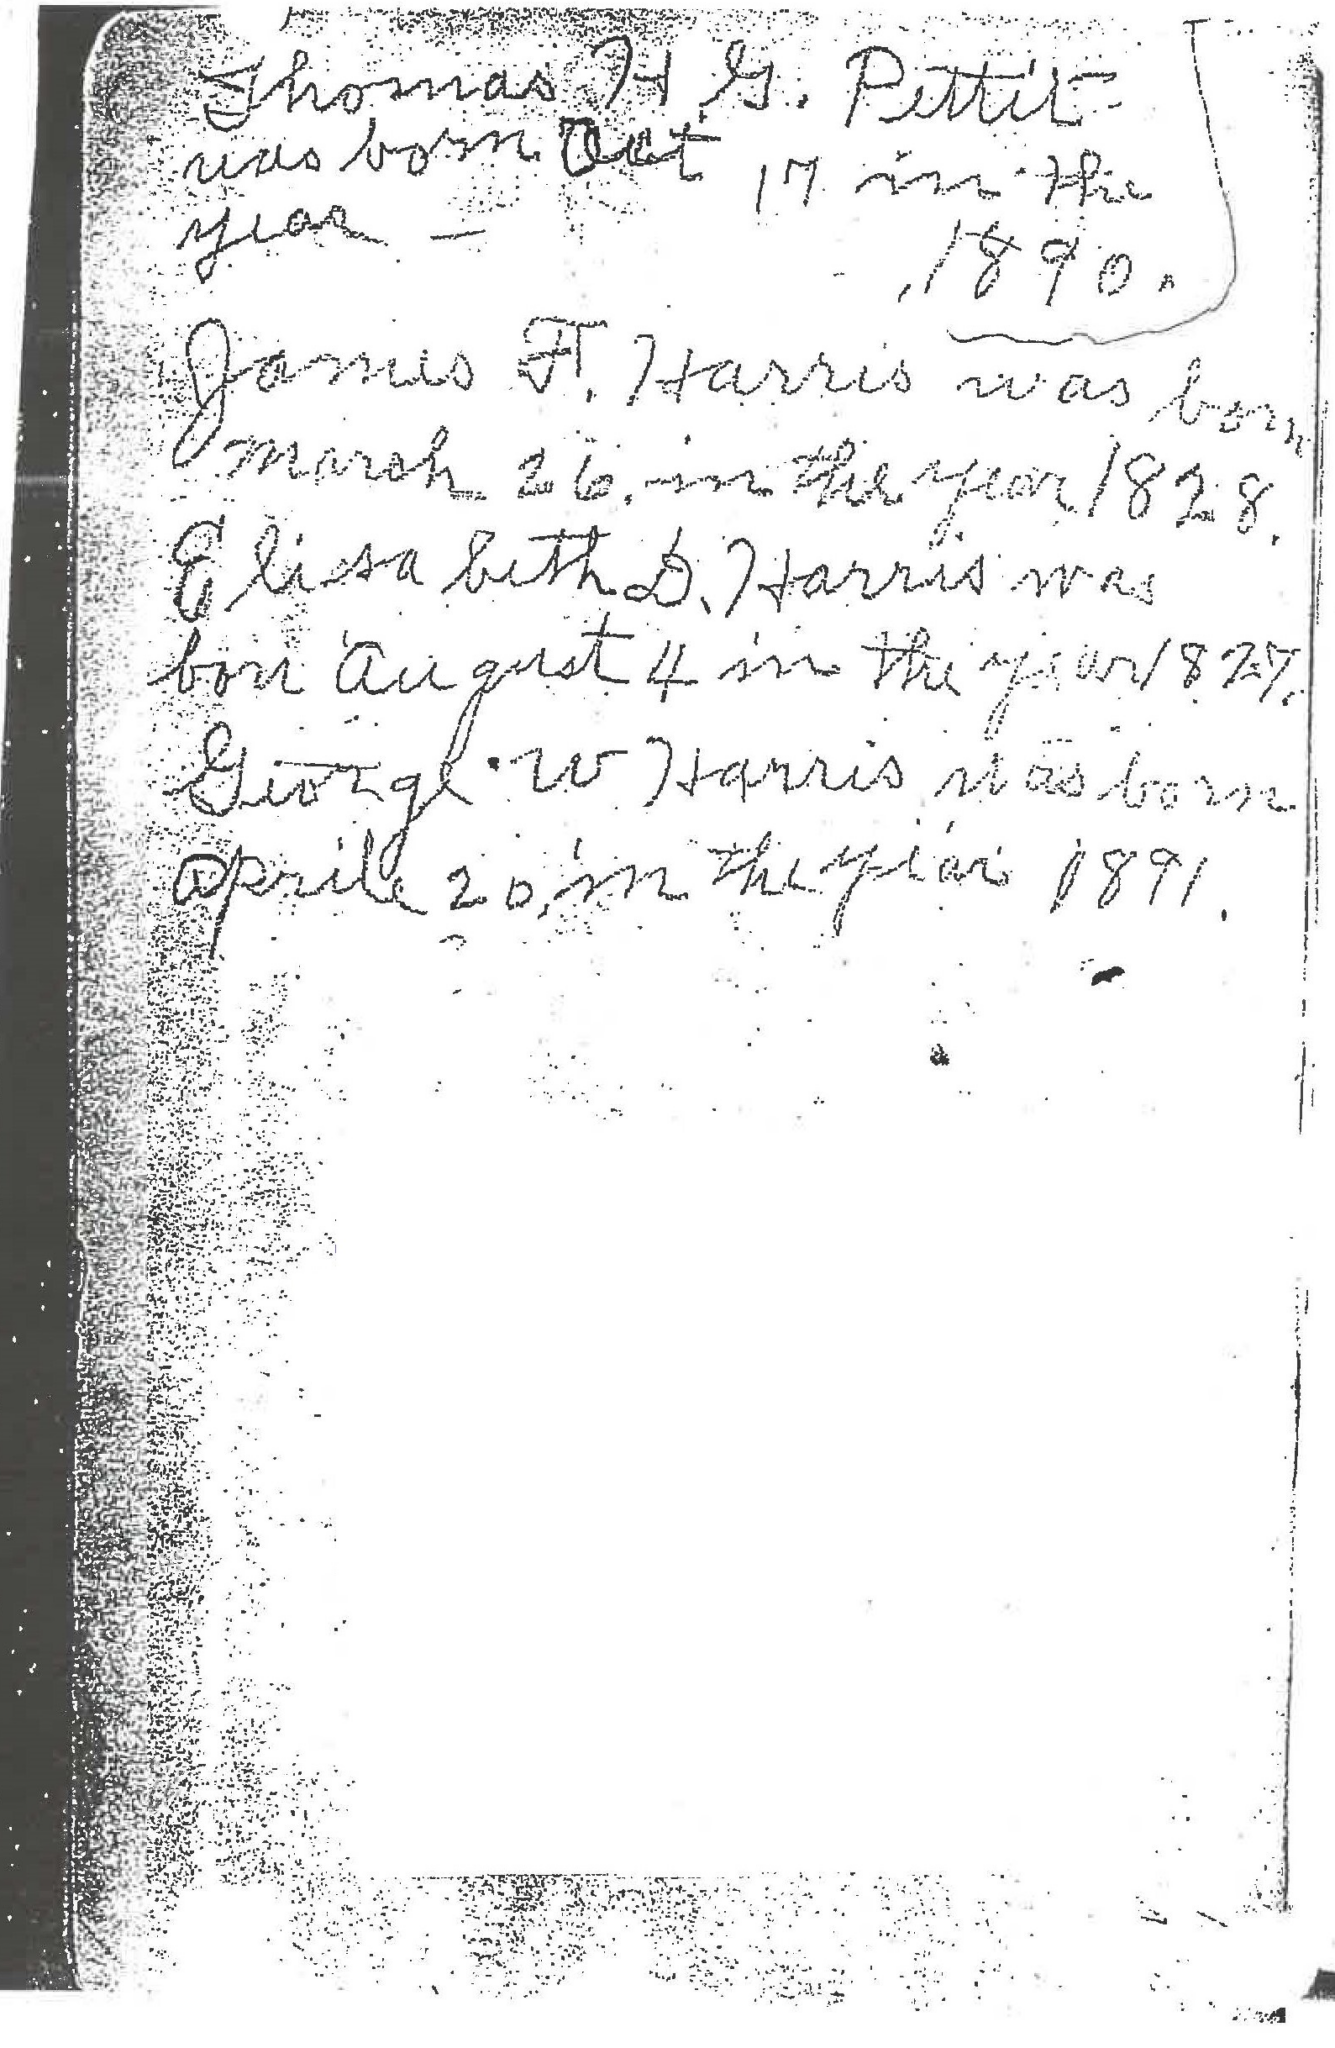 Thomas H G. Pettit
was born Oct 17 in the
year —
1890.
James F. Harris was born
March 26. in the year 1828.
Elisa beth D. Harris was
bon August 4 in the year 1827.
George W Harris was born
aprile 20, in the year 1891.